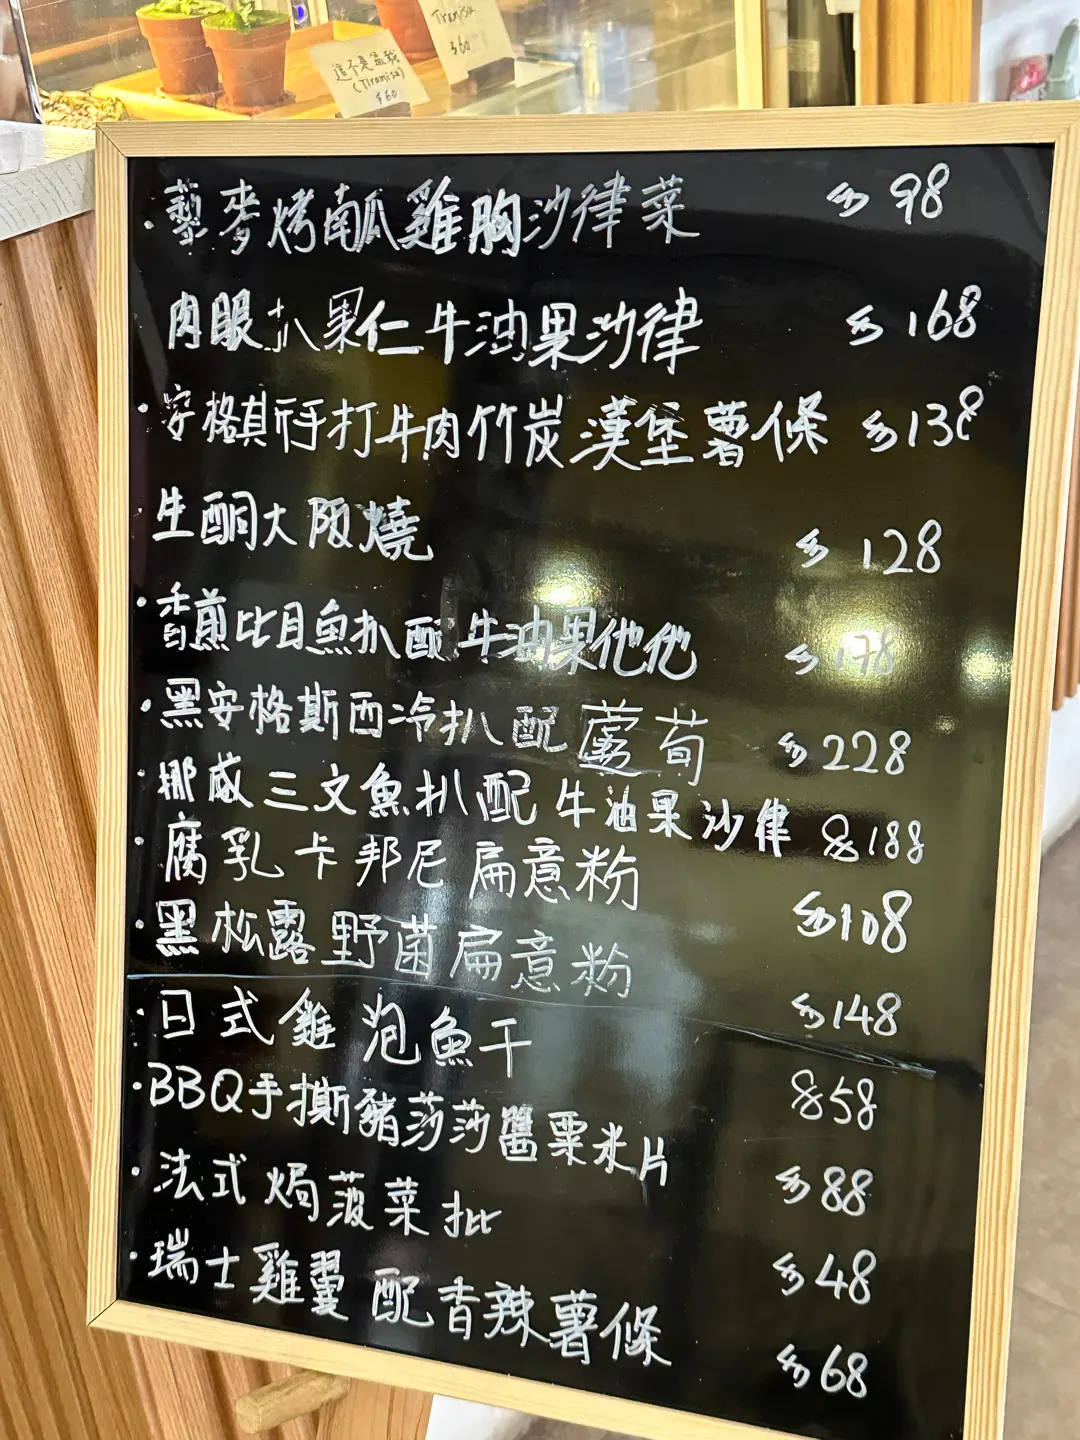 Tiramisu
$60
這不是盆栽
(Tiramisu)
$60
·藜麥烤南瓜雞胸沙律菜 $98
肉眼扒果仁牛油果沙律 $168
·安格斯手打牛肉竹炭漢堡薯條 $138
生酮大阪燒 $128
·香煎比目魚扒配牛油果他他 $178
·黑安格斯西冷扒配蘆荀 $228
·挪威三文魚扒配牛油果沙律 $188
·腐乳卡邦尼扁意粉 $108
·黑松露野菌扁意粉 $148
·日式雞泡魚干 $58
·BBQ手撕豬莎莎醬粟米片 $88
·法式焗菠菜批 $48
·瑞士雞翼配香辣薯條 $68